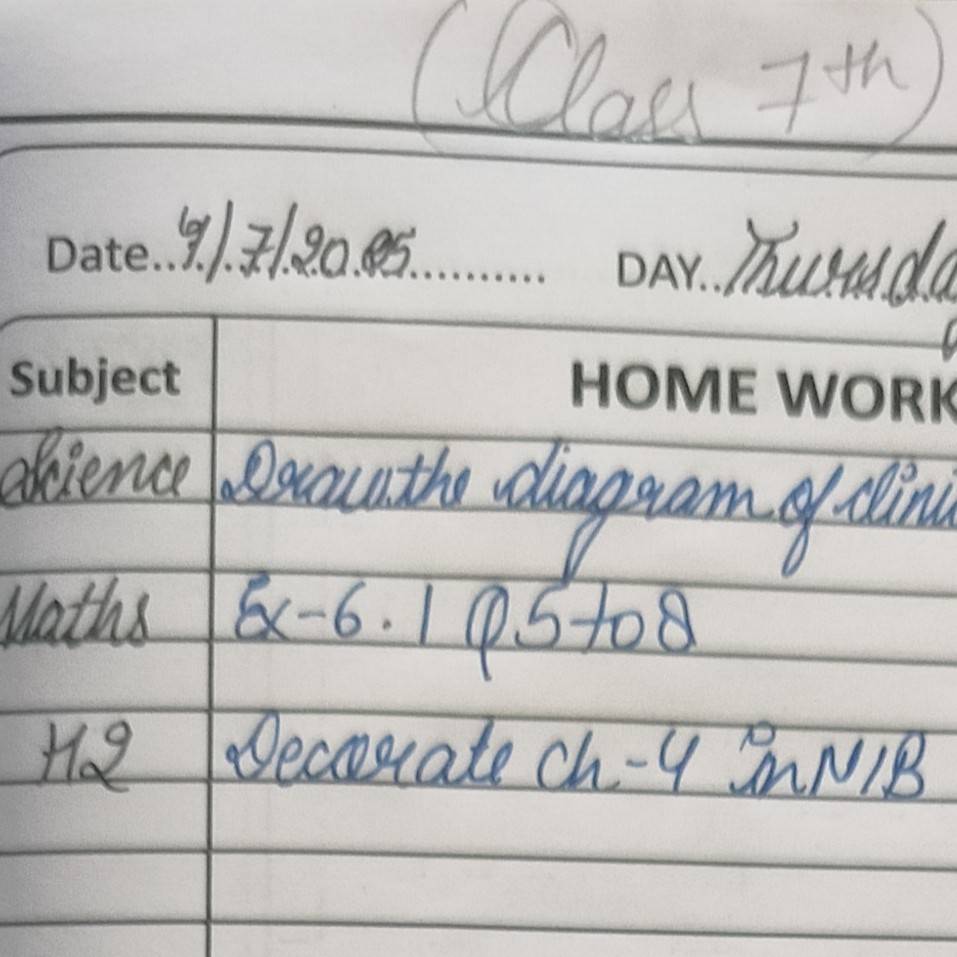 (Class 7th)
Date.. /.7/.20.25.......... DAY..Thursda
Subject HOME WORK
Science Draw the diagram of clini
Maths Ex-6.1 Q.5 to 8
H2 Decorate Ch-4 in N/B